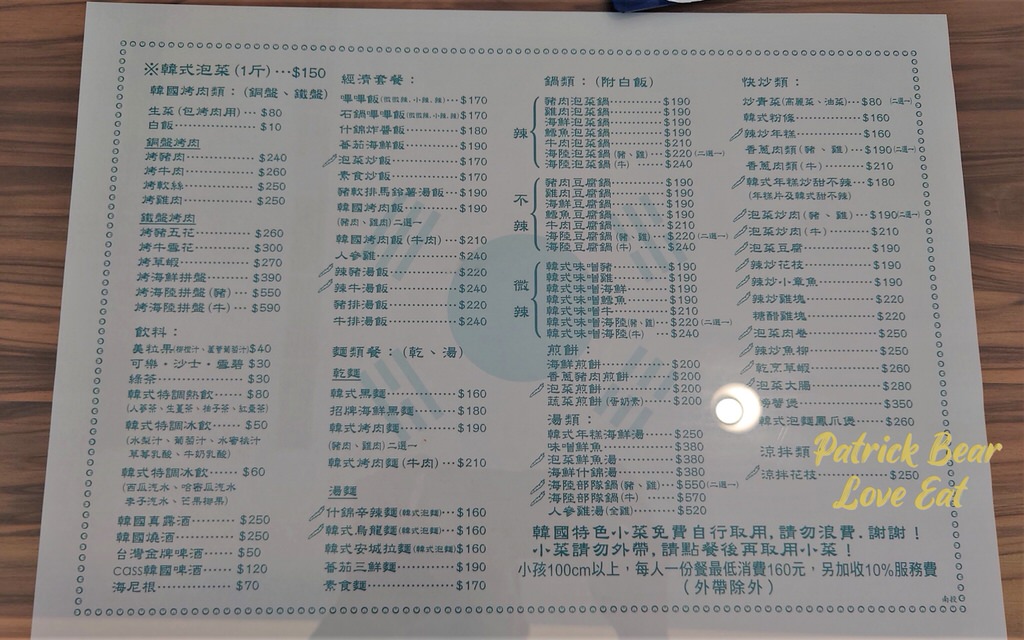 ※韓式泡菜(1斤)…$150
韓國烤肉類：(銅盤、鐵盤)
生菜(包烤肉用)…$80
白飯…$10
銅盤烤肉
烤豬肉…$240
烤牛肉…$260
烤軟絲…$250
烤雞肉…$250
鐵盤烤肉
烤豬五花…$260
烤牛雪花…$300
烤草蝦…$270
烤海鮮拼盤…$390
烤海陸拼盤(豬)…$550
烤海陸拼盤(牛)…$590
飲料：
美粒果(柳橙汁、蘆薈葡萄汁)$40
可樂·沙士·雪碧 $30
綠茶…$30
韓式特調熱飲…$80
(人蔘茶、生薑茶、柚子茶、紅棗茶)
韓式特調冰飲…$50
(水梨汁、葡萄汁、水蜜桃汁
草莓乳酸、牛奶乳酸)
韓式特調冰飲…$60
(西瓜汽水、哈密瓜汽水
李子汽水、芒果椰果)
韓國真露酒…$250
韓國燒酒…$250
台灣金牌啤酒…$50
CASS韓國啤酒…$120
海尼根…$70
經濟套餐：
嗶嗶飯(微微辣、小辣、辣)…$170
石鍋嗶嗶飯(微微辣、小辣、辣)$170
什錦炸醬飯…$180
番茄海鮮飯…$190
泡菜炒飯…$170
素食炒飯…$170
豬軟排馬鈴薯湯飯…$190
韓國烤肉飯…$190
(豬肉、雞肉)二選一
韓國烤肉飯(牛肉)…$210
人參雞…$240
辣豬湯飯…$220
辣牛湯飯…$240
豬排湯飯…$220
牛排湯飯…$240
麵類餐：(乾、湯)
乾麵
韓式黑麵…$160
招牌海鮮黑麵…$180
韓式烤肉麵…$190
(豬肉、雞肉)二選一
韓式烤肉麵(牛肉)…$210
湯麵
什錦辛辣麵(韓式泡麵)…$160
韓式烏龍麵(韓式泡麵)…$160
韓式安城拉麵(韓式泡麵)$160
番茄三鮮麵…$190
素食麵…$170
鍋類：(附白飯)
辣
豬肉泡菜鍋…$190
雞肉泡菜鍋…$190
海鮮泡菜鍋…$190
鱈魚泡菜鍋…$190
牛肉泡菜鍋…$210
海陸泡菜鍋(豬、雞)…$220(二選一)
海陸泡菜鍋(牛)…$240
不辣
豬肉豆腐鍋…$190
雞肉豆腐鍋…$190
海鮮豆腐鍋…$190
鱈魚豆腐鍋…$190
牛肉豆腐鍋…$210
海陸豆腐鍋(豬、雞)…$220(二選一)
海陸豆腐鍋(牛)…$240
微辣
韓式味噌豬…$190
韓式味噌雞…$190
韓式味噌海鮮…$190
韓式味噌鱈魚…$190
韓式味噌牛…$210
韓式味噌海陸(豬、雞)…$220(二選一)
韓式味噌海陸(牛)…$240
煎餅：
海鮮煎餅…$200
香蔥豬肉煎餅…$200
泡菜煎餅…$200
蔬菜煎餅(蛋奶素)…$200
湯類：
韓式年糕海鮮湯…$250
味噌鮮魚…$380
泡菜鮮魚湯…$380
海鮮什錦湯…$380
海陸部隊鍋(豬、雞)…$550(二選一)
海陸部隊鍋(牛)…$570
人參雞湯(全雞)…$520
快炒類：
炒青菜(高麗菜、油菜)…$80(二選一)
韓式粉條…$160
辣炒年糕…$160
香蔥肉類(豬、雞)…$190(二選一)
香蔥肉類(牛)…$210
韓式年糕炒甜不辣…$180
(年糕片及韓式甜不辣)
泡菜炒肉(豬、雞)…$190(二選一)
泡菜炒肉(牛)…$210
泡菜豆腐…$190
辣炒花枝…$190
辣炒小章魚…$190
辣炒雞塊…$220
糖醋雞塊…$220
泡菜肉卷…$250
辣炒魚柳…$250
乾烹草蝦…$260
泡菜大腸…$280
螃蟹煲…$350
韓式泡麵鳳爪煲…$260
涼拌類
涼拌花枝…$250
韓國特色小菜免費自行取用,請勿浪費.謝謝！
小菜請勿外帶,請點餐後再取用小菜！
小孩100cm以上，每人一份餐最低消費160元，另加收10%服務費
(外帶除外)
南投
Patrick Bear
Love Eat